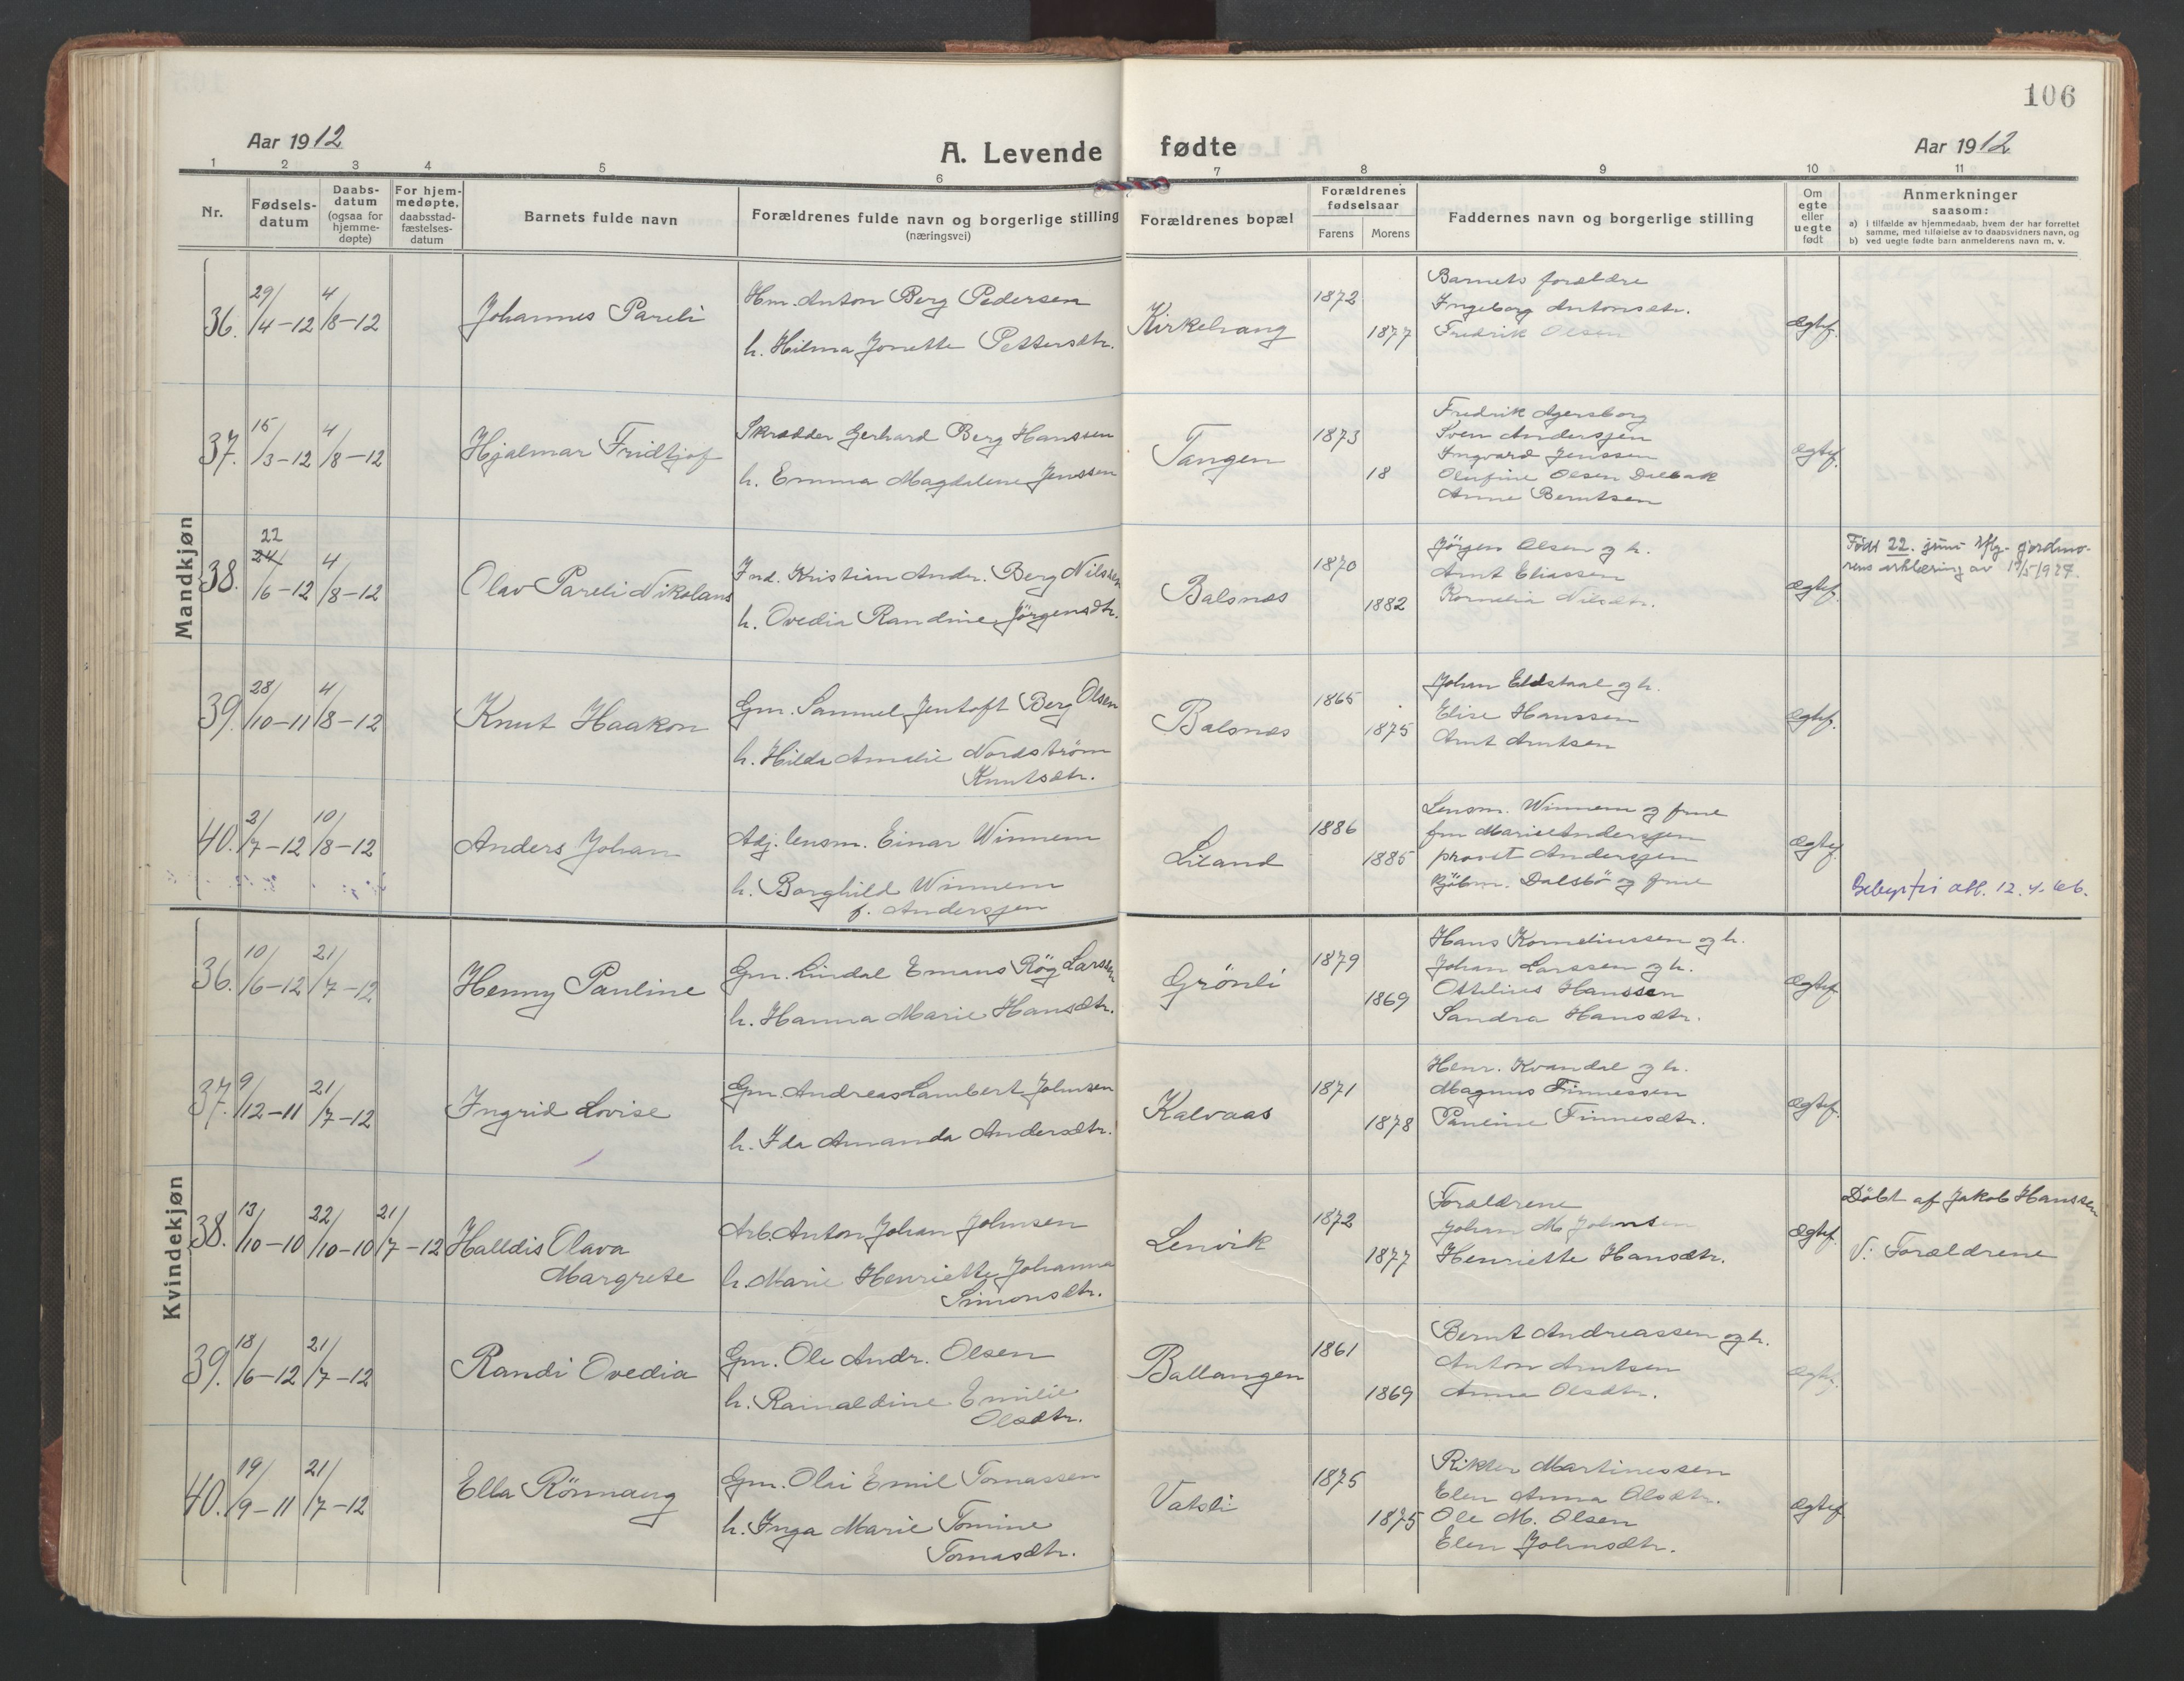 106
Aar 1912
A. Levende fødte
Aar 1912
1 2 3 4 5 6 7 8 9 10 11
Nr.
Fødsels-
datum
Daabs-
datum
(ogsaa for
hjemme-
døpte)
For hjem-
medøpte,
daabsstad-
fæstelses-
datum
Barnets fulde navn
Forældrenes fulde navn og borgerlige stilling
(næringsvei)
Forældrenes bopæl
Forældrenes
fødselsaar
Farens Morens
Faddernes navn og borgerlige stilling
Om
egte
eller
uegte
født
Anmerkninger
saasom:
a) i tilfælde av hjemmedaab, hvem der har forrettet
samme, med tilføielse av to daabsvidners navn, og
b) ved uegte fødte barn anmelderens navn m. v.
Mandkjøn
36. 29/4-12 4/8-12
Johannes Pareli
Hm. Anton Berg Pedersen
h. Hilma Jonette Pettersdtr.
Kirkehaug
1872
1877
Barnets forældre
Ingeborg Antonsdtr.
Fredrik Olsen
Ægtef.
37. 15/3-12 4/8-12
Hjalmar Fridtjof
Skrædder Gerhard Berg Hanssen
h. Emma Magdalene Jenssen
Tangen
1873
18
Fredrik Agersborg
Sven Andersjen
Ingvard Jenssen
Olufine Olsen Dalbak
Anne Berntsen
Ægtef.
38. 22 24/6-12 4/8-12
Olav Pareli Nikolaus
Ind. Kristian Andr. Berg Nilssen
h. Ovedia Randine Jørgensdtr.
Balsnes
1870
1882
Jörgen Olsen og h.
Arnt Eliassen
Kornelia Nilsdtr.
Ægtef.
Født 22. juni iflg. jordmo-
rens erklæring av 17/5 1927.
39. 28/10-11 4/8-12
Knut Haakon
Gm. Samuel Jentoft Berg Olsen
h. Hilda Amalie Nordstrøm
Knutsdtr.
Balsnes
1865
1875
Johan Eldstaal og h.
Elise Hanssen
Arnt Arntsen
Ægtef.
40. 2/7-12 10/8-12
Anders Johan
Adj. lensm. Einar Winnem
h. Borghild Winnem
f. Andersjen
Liland
1886
1885
Lensm. Winnem og frue
fru Marie Andersjen
provst Andersjen
kjöbm. Dalsbö og frue
Ægtef.
att. 12.4.66.
Kvindekjøn
36. 10/6-12 21/7-12
Henny Pauline
Gm. Lindal Emaus Røg Larssen
h. Hanna Marie Hansdtr.
Grönli
1879
1869
Hans Korneliussen og h.
Johan Larssen og h.
Ottelius Hanssen
Sandra Hansdtr.
Ægtef.
37. 9/12-11 21/7-12
Ingrid Lovise
Gm. Andreas Lambert Johnsen
h. Ida Amanda Andersdtr.
Kalvaas
1871
1878
Henr. Kvandal og h.
Magnus Finnessen
Pauline Finnesdtr.
Ægtef.
38. 13/10-10 22/10-10 21/7-12
Halldis Olava
Margrete
Arb. Anton Johan Johnsen
h. Marie Henriette Johanna
Simonsdtr.
Lenvik
1872
1877
Forældrene
Johan M. Johnsen
Henriette Hansdtr.
Ægtef.
Döbt af Jakob Hanssen
V: Forældrene
39. 18/6-12 21/7-12
Randi Ovedia
Gm. Ole Andr. Olsen
h. Rainaldine Emilie
Olsdtr.
Ballangen
1861
1869
Bernt Andreassen og h.
Anton Arntsen
Anna Olsdtr.
Ægtef.
40. 19/9-11 21/7-12
Ella Rönnaug
Gm. Olai Emil Tomassen
h. Inga Marie Tomine
Tomasdtr.
Vatsli
1875
1875
Rikter Martinessen
Elen Anna Olsdtr.
Ole M. Olsen
Elen Johnsdtr.
Ægtef.